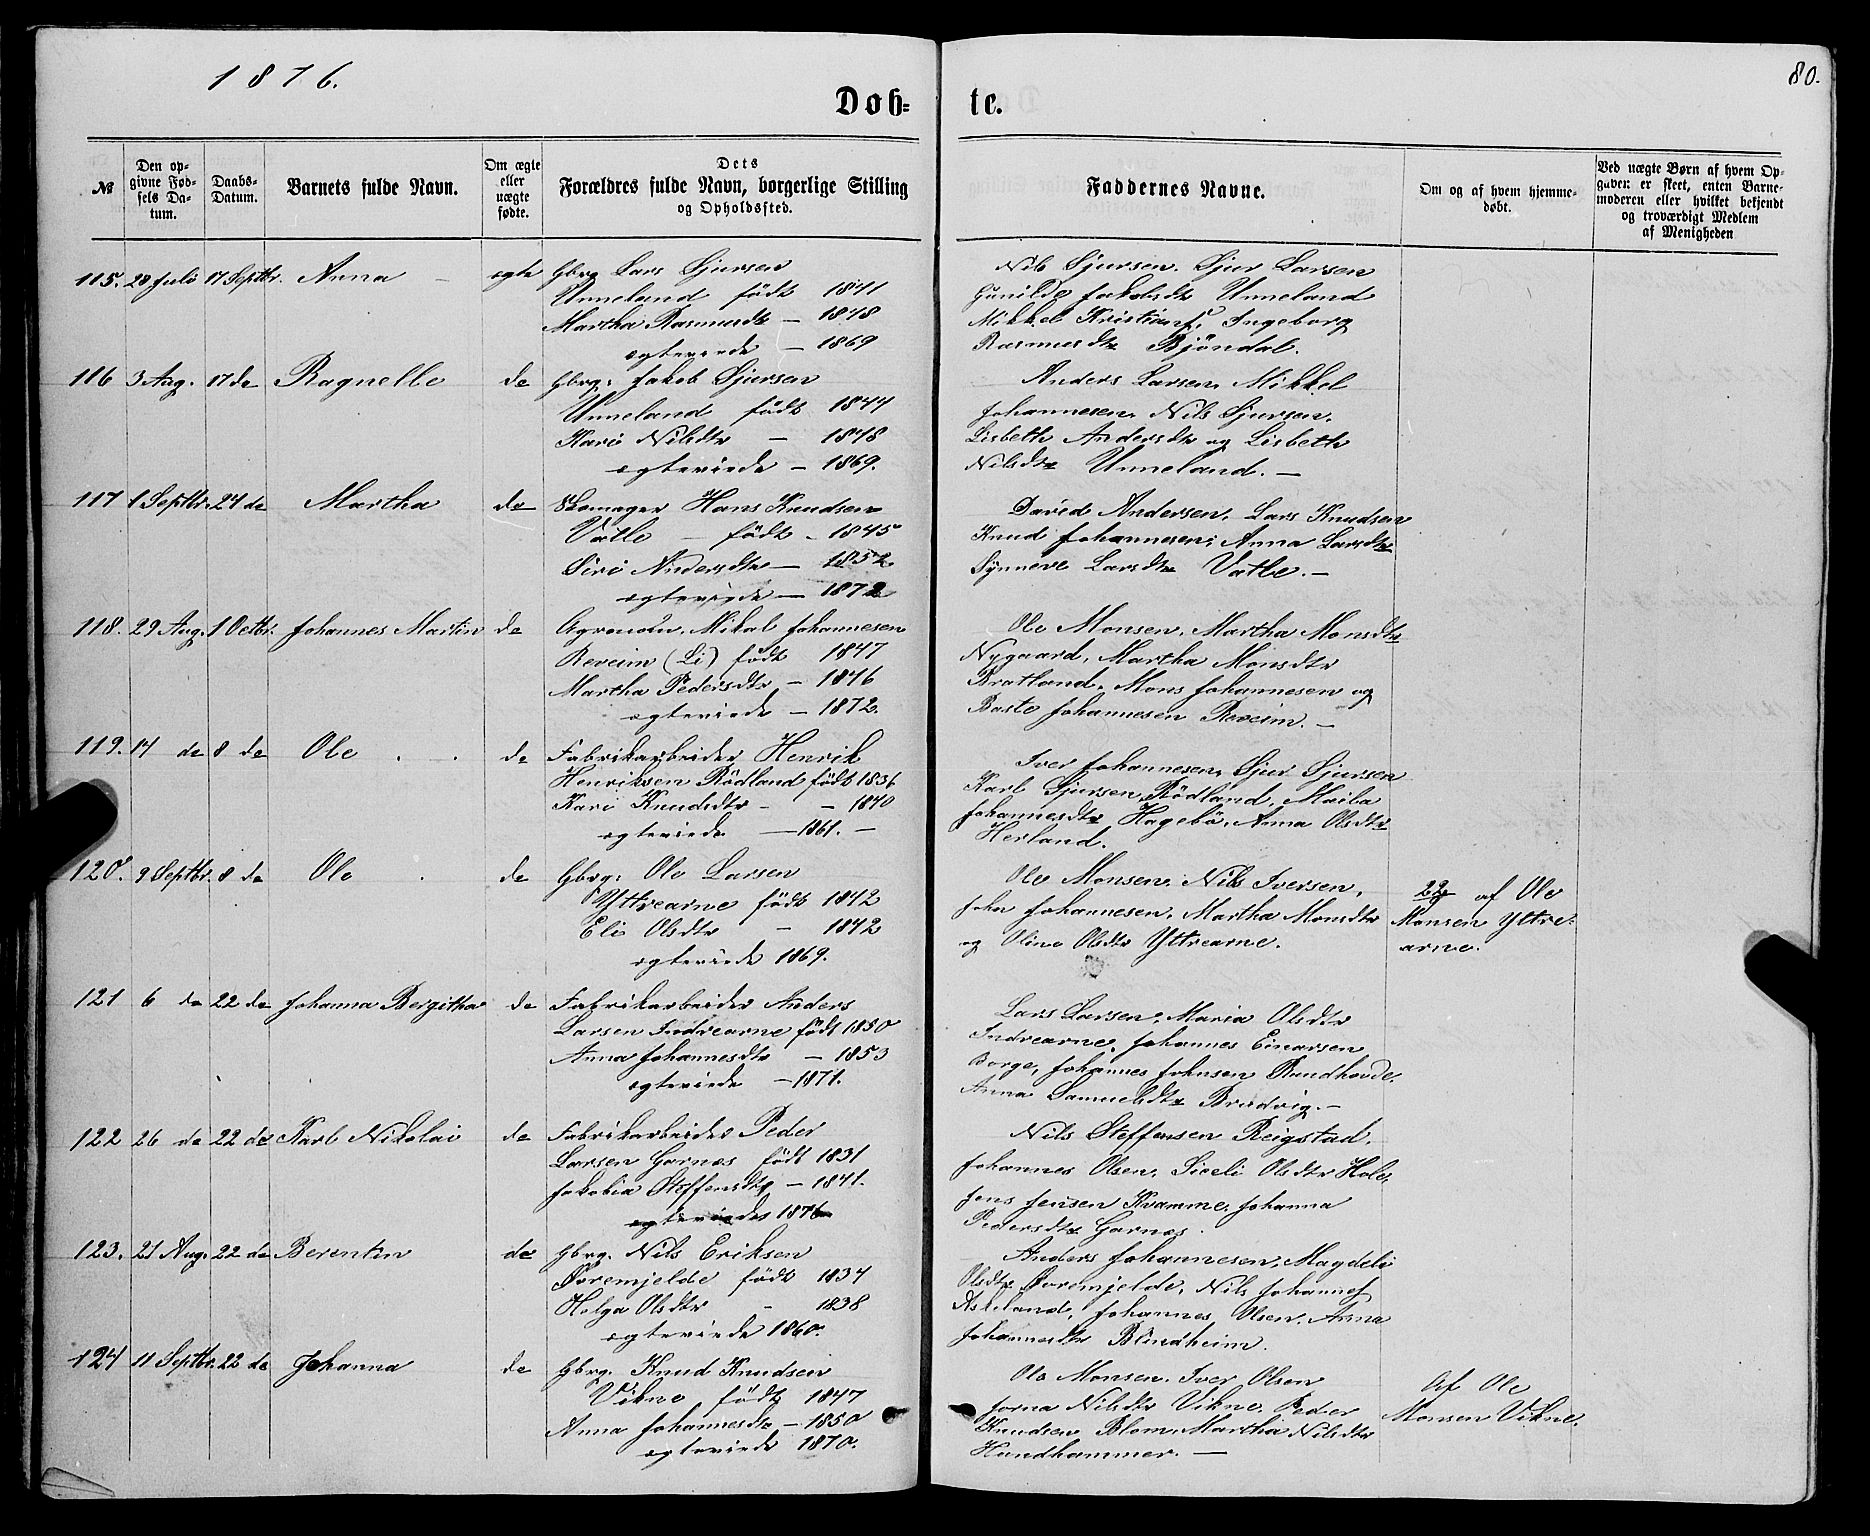 1876.
80.
Døb=
te.
№
Den op-
givne Fød-
sels Da-
tum.
Daabs-
Datum.
Barnets fulde Navn.
Om ægte
eller
uægte
fødte.
Dets
Forældres fulde Navn, borgerlige Stilling
og Opholdssted.
Faddernes Navne.
Om og af hvem hjemme-
døbt.
Ved uægte Børn af hvem Op-
gaven er skeet, enten Barne-
moderen eller hvilket bekjendt
og troværdigt Medlem
af Menigheden
115. 28 Juli 17 Septbr. Anna – ægte Gbrg. Lars Sjursen
Unneland født 1841
Martha Rasmusdtr – 1848
ægteviede – 1869
Nils Sjursen. Sjur Larsen
Gunilde Jakobsdtr Unneland
Mikkel Kristians. Ingeborg
Rasmusdtr Bjöndal.
116 3 Aug. 17 do Ragnelle do Gbrg. Jakob Sjursen
Unneland født 1844
Kari Nilsdtr – 1848
ægteviede – 1869.
Anders Larsen, Mikkel
Johannesen, Nils Sjursen,
Lisbeth Andersdtr og Lisbeth
Nilsdtr Unneland. –
117 1 Septbr. 24 do Martha do Skomager Hans Knudsen
Vatle – født – 1845
Siri Andersdtr – 1852
ægteviede – 1872
David Andersen, Lars Knudsen
Knud Johannesen, Anna Larsdtr
Synneve Larsdtr Vatle. –
118. 29 Aug. 1 Octbr. Johannes Martin do Agronom. Mikal Johannesen
Reveim (Li) født 1847
Martha Pedersdtr – 1846
ægteviede – 1872.
Ole Monsen, Martha Monsdtr
Nygaard, Martha Monsdtr
Bratland, Mons Johannesen og
Baste Johannesen Reveim. –
119. 14 do 8 do Ole do Fabrikarbeider Henrik
Henriksen Rödland født 1836
Kari Knudsdtr – – 1840
ægteviede – 1861. –
Iver Johannesen, Sjur Sjursen
Karl Sjursen Rödland, Maiba
Johannesdtr Hagebö, Anna Olsdtr
Herland.
120. 9 Septbr. 8 do Ole do Gbrg. Ole Larsen
Yttrearne født 1842
Eli Olsdtr – 1842
ægteviede 1869.
Ole Monsen, Nils Iversen,
John Johannesen, Martha Monsdtr
og Oline Olsdtr Yttrearne.
22/9 af Ole
Monsen Yttre-
arne.
121 6 do 22 do Johanna Bergitha do Fabrikarbeider Anders
Larsen Indrearne født 1850
Anna Johannesdtr – 1853
ægteviede – 1871.
Lars Larsen, Maria Olsdtr
Indrearne, Johannes Einarsen
Borge, Johannes Johnsen Rundhovde,
Anna Samuelsdtr Brudvig. –
122 26 do 22 do Karl Nikolai do Fabrikarbeider Peder
Larsen Garnæs født 1831
Jakobia Steffensdtr – 1841.
ægteviedes 1876
Nils Steffensen Reigstad,
Johannes Olsen, Siceli Olsdtr Hole,
Jens Jensen Kvamme, Johanna
Pedersdtr Garnæs.
123. 21 Aug. 22 do Berentin do Gbrg. Nils Eriksen
Övremjelde født 1834
Helga Olsdtr – 1838
ægteviede 1860.
Anders Johannesen, Magdeli
Olsdtr Övremjelde, Nils Johannes
Askeland, Johannes Olsen, Anna
Johannesdtr Blindheim.
124 11 Septbr. 22 do Johanna do Gbrg. Knud Knudsen
Vikne født 1847
Anna Johannesdtr – 1850
ægteviede 1870.
Ole Monsen. Iver Olsen
Jorna Nilsdtr Vikne, Peder
Knudsen Blom, Martha Nilsdtr
Hundhammer. –
Af Ole
Monsen Vikne.